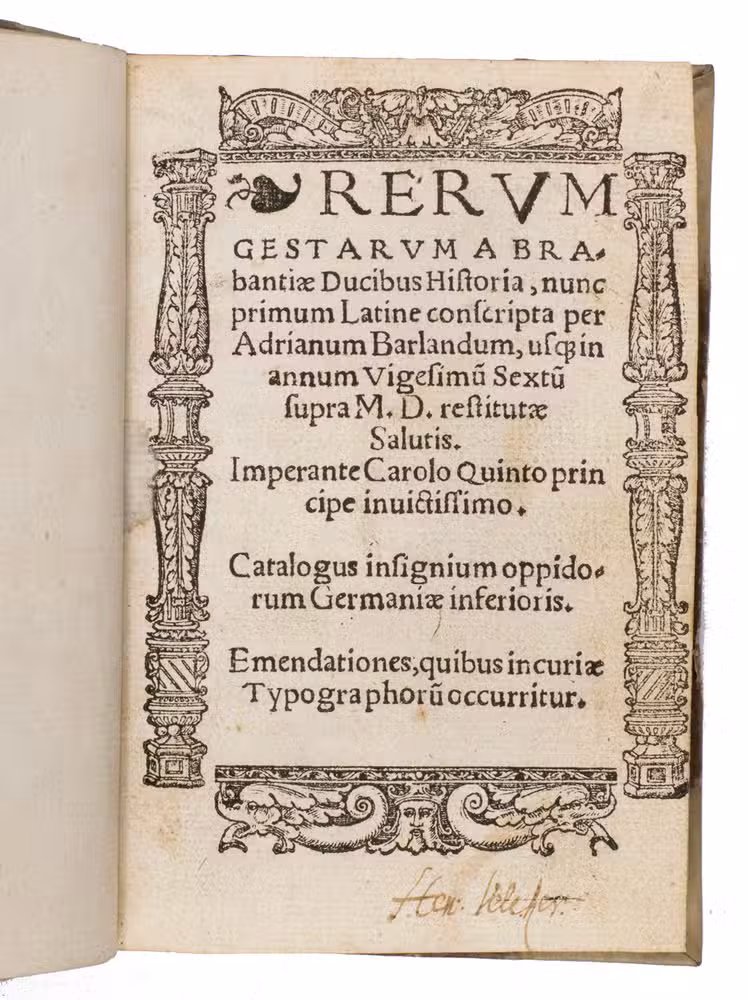 ❧ RERVM
GESTARVM A BRA-
bantiæ Ducibus Hiſtoria, nunc
primum Latine conſcripta per
Adrianum Barlandum, uſqꝫ in
annum Vigeſimū Sextū
ſupra M. D. reſtitutæ
Salutis.
Imperante Carolo Quinto prin
cipe inuictiſſimo.
Catalogus inſignium oppido-
rum Germaniæ inferioris.
Emendationes, quibus incuriæ
Typographorū occurritur.
Hen: